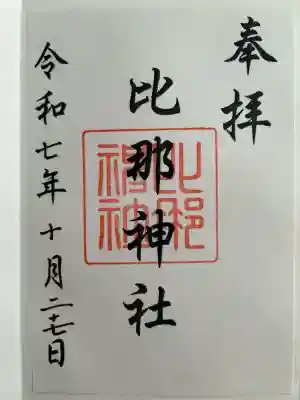 奉拝
比那神社
比那神社
令和七年十月二十七日